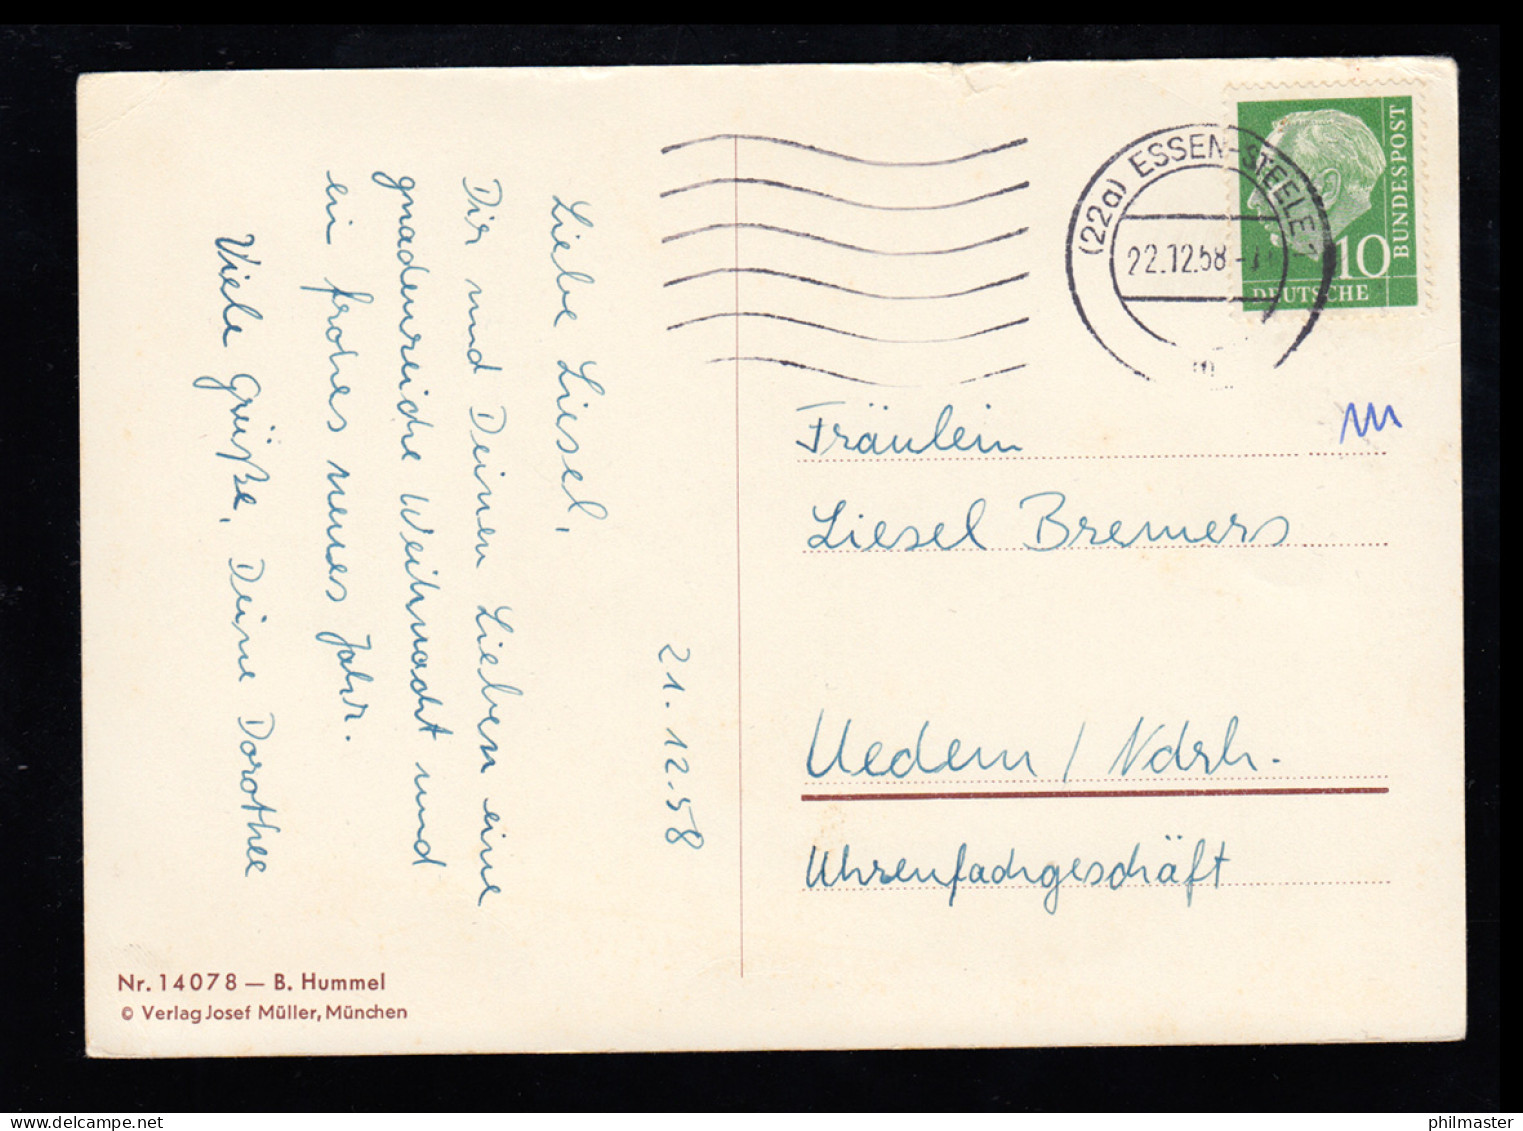 21.12.58
Liebe Liesel,
Dir und Deinen Lieben eine
gnadenreiche Weihnacht und
ein frohes neues Jahr.
Viele Grüße, Deine Dorothee
Nr. 14078 — B. Hummel
© Verlag Josef Müller, München
(22a) ESSEN-STEELE 1
22.12.58
m
BUNDESPOST
10
DEUTSCHE
Fräulein
Liesel Bremers
Uedem / Ndrh.
Uhrenfachgeschäft
philmaster